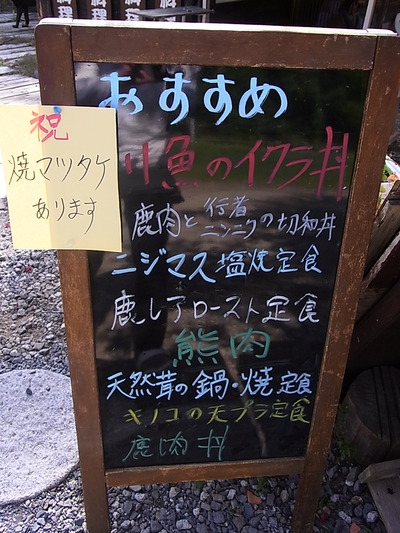 おすすめ
川魚のイクラ丼
鹿肉と行者ニンニクの切和丼
ニジマス塩焼定食
鹿レアロースト定食
熊肉
天然茸の鍋・焼定食
キノコの天プラ定食
鹿肉丼
祝
焼マツタケ
あります